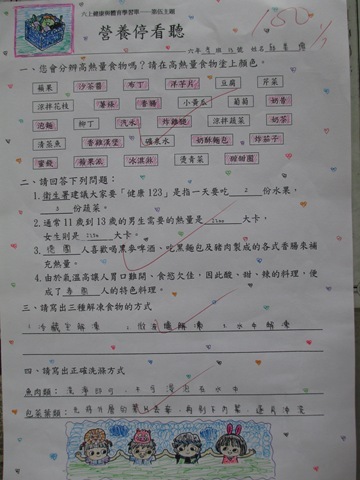 六上健康與體育學習單——第伍主題
營養停看聽
六年 班 15號 姓名
一、您會分辨高熱量食物嗎？請在高熱量食物塗上顏色。
蘋果 沙茶醬 布丁 洋芋片 豆腐 芹菜
涼拌花枝 薯條 香腸 小黃瓜 葡萄 奶昔
泡麵 柳丁 汽水 炸雞腿 涼拌蔬菜 奶茶
清蒸魚 香雞漢堡 礦泉水 奶酥麵包 炸茄子
蜜餞 蘋果派 冰淇淋 燙青菜 甜甜圈
二、請回答下列問題：
1.衛生署建議大家要「健康123」是指一天要吃 2 份水果，
3 份蔬菜。
2.通常11歲到13歲的男生需要的熱量是 大卡，
女生則是 大卡。
3. 德國 人喜歡喝黑麥啤酒、吃黑麵包及豬肉製成的各式香腸來補
充熱量。
4.由於氣溫高讓人胃口難開、食慾欠佳，因此酸、甜、辣的料理，便
成了 泰國 人的特色料理。
三、請寫出三種解凍食物的方式
1.冷藏室解凍 2. 解凍 3.水中解凍
四、請寫出正確洗滌方式
魚肉類：清淨即可，不可浸泡在水中
包葉菜類：先將外層 ，再剝下內葉，逐片沖洗